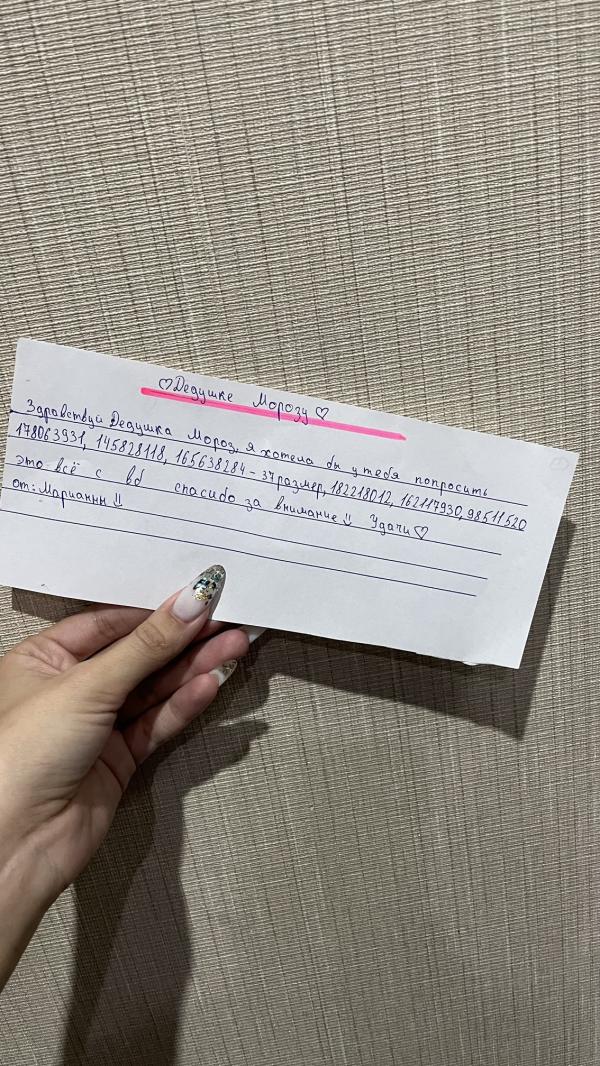 ♡Дедушке Морозу♡
Здравствуй Дедушка Мороз, я хотела бы у тебя попросить
178063931, 145828118, 165638284 - 37 размер, 182218012, 162117930, 98511520
это всё с вб спасибо за внимание!! Удачи♡
от: Марианны!!